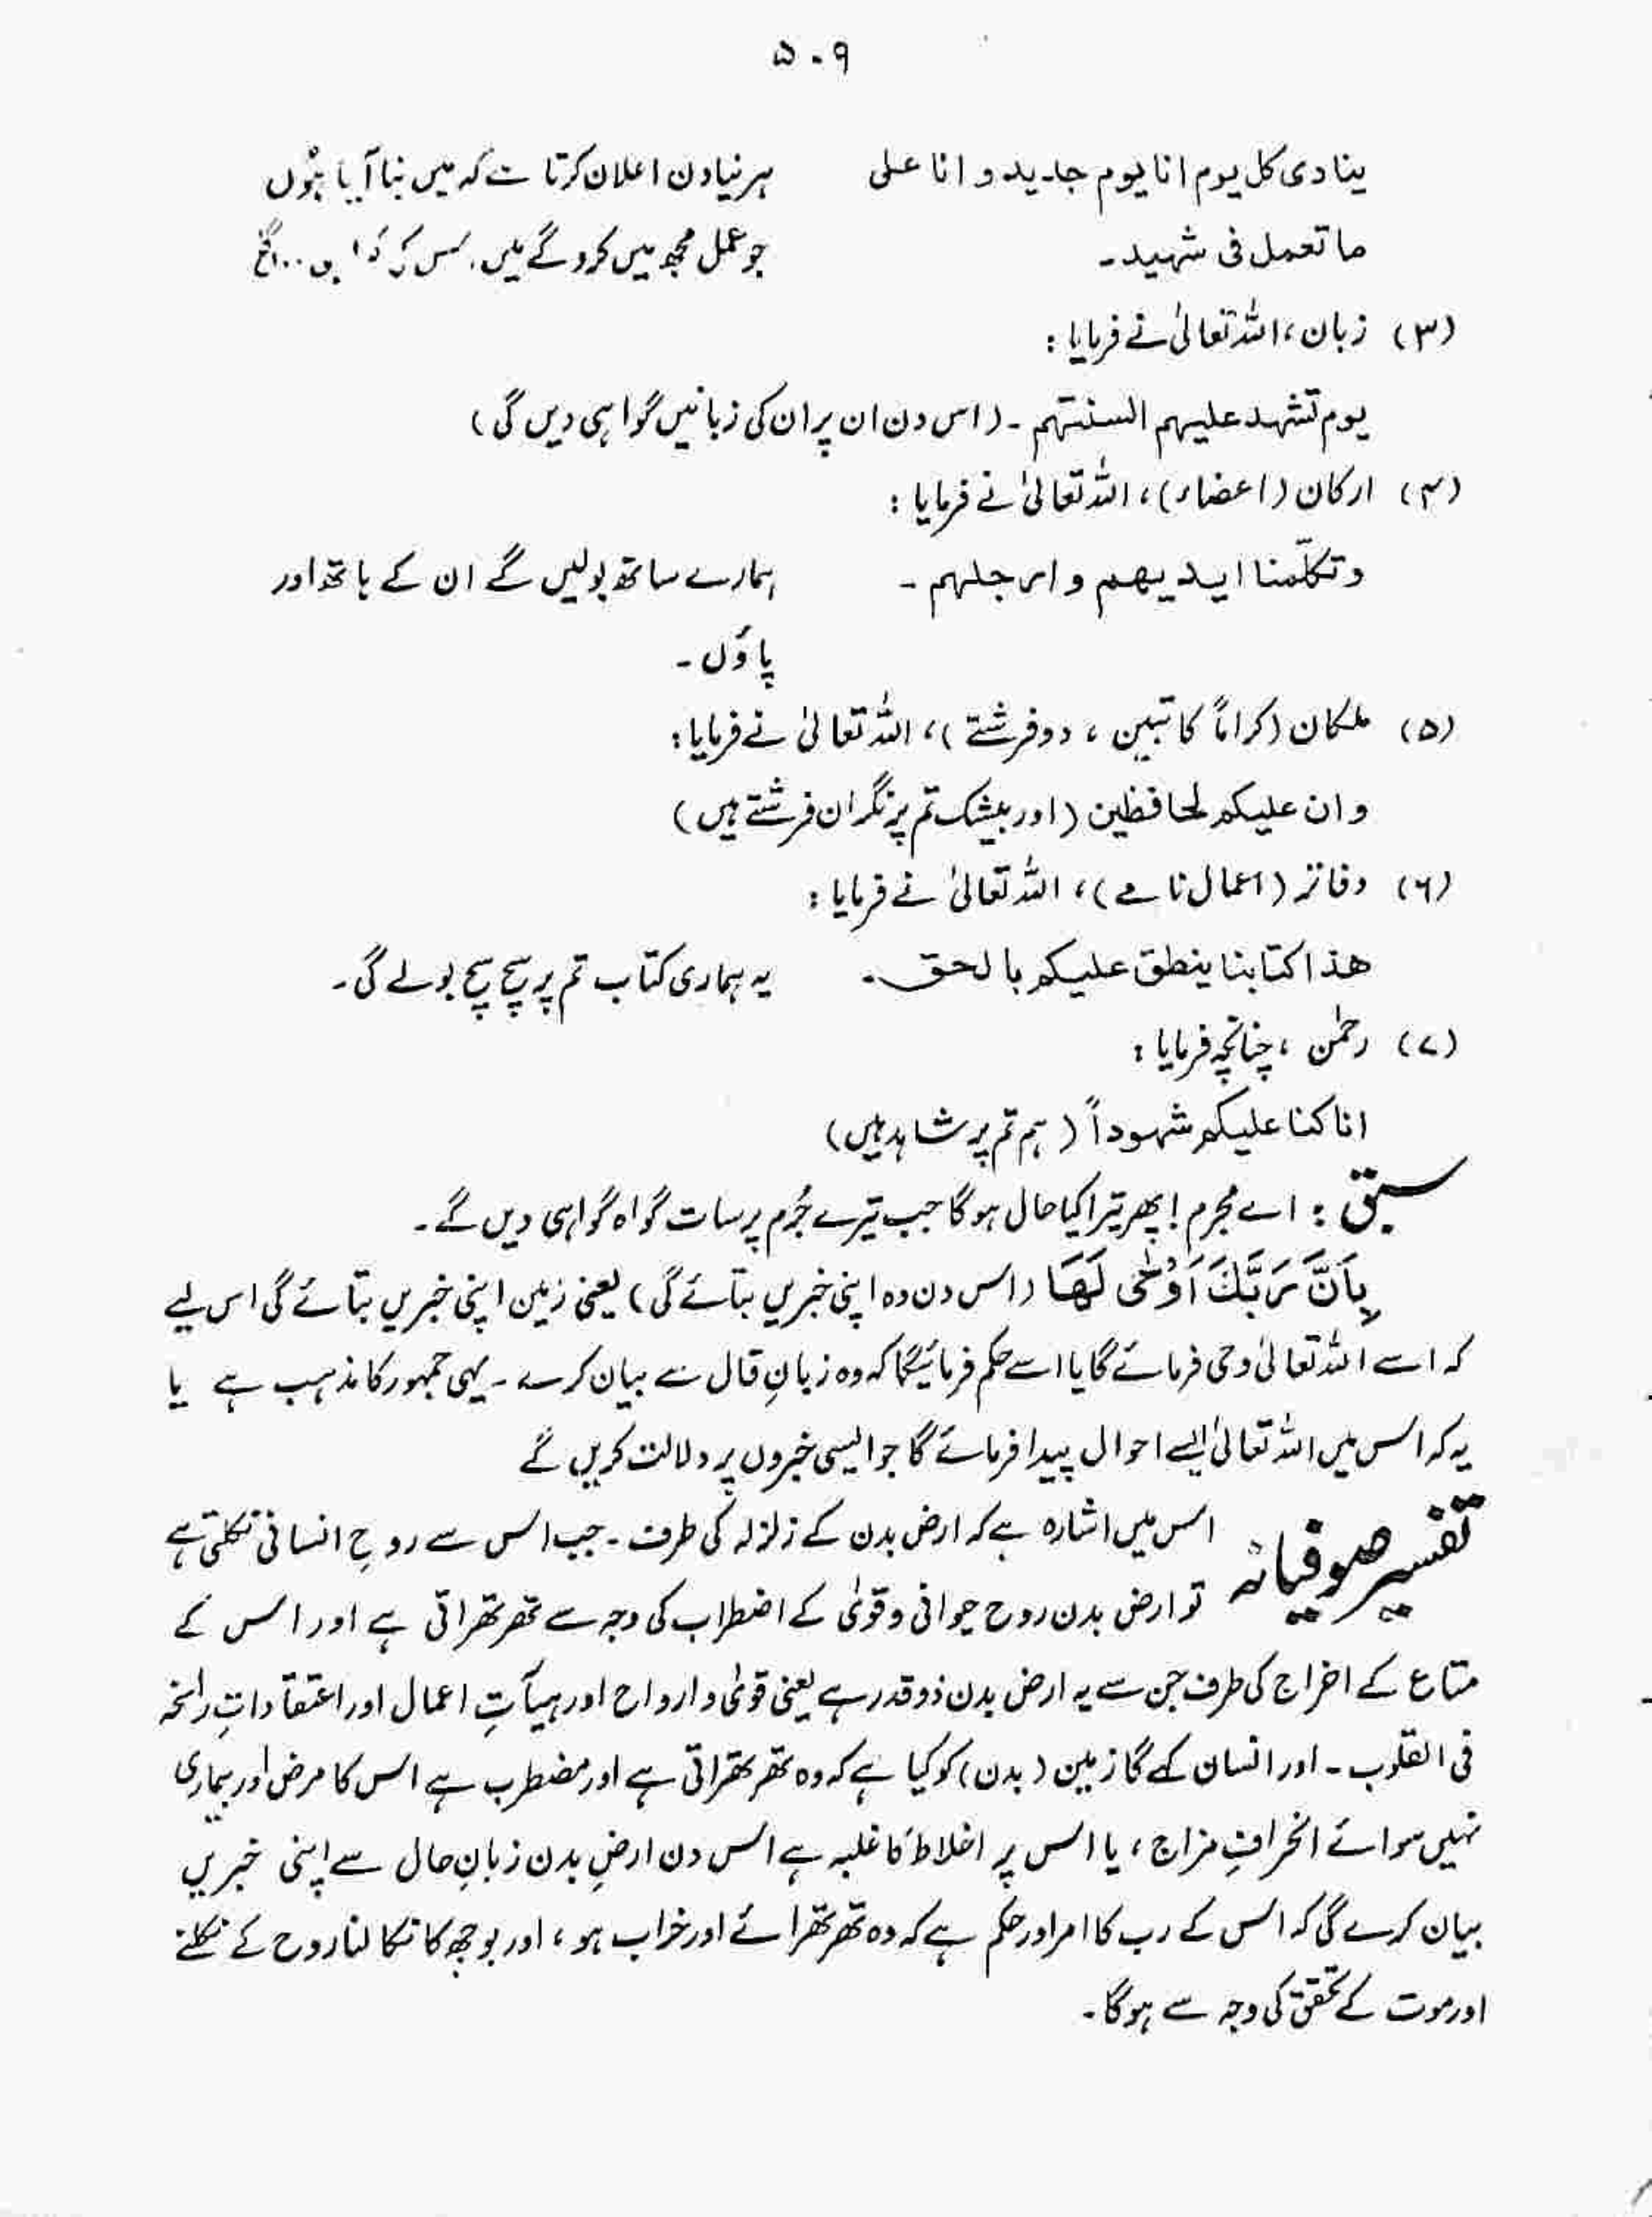 ۵۰۹
ینادی کل یوم انا یوم جدید و انا علی ہر نیا دن اعلان کرتا ہے کہ میں نیا آیا ہُوں
ما تعمل فی شهید۔ جو عمل مجھ میں کرو گے میں
(۳) زبان، اللہ تعالیٰ نے فرمایا :
یوم تشہد علیہم السنتہم ۔ (اس دن ان پر ان کی زبانیں گواہی دیں گی)
(۴) ارکان (اعضاء)، اللہ تعالیٰ نے فرمایا :
و تکلّمنا ایدیھم و ارجلہم ۔ ہمارے ساتھ بولیں گے ان کے ہاتھ اور
پاؤں ۔
(۵) ملکان (کراماً کاتبین ، دو فرشتے)، اللہ تعالیٰ نے فرمایا :
و ان علیکم لحافظین (اور بیشک تم پر نگران فرشتے ہیں)
(۶) دفاتر (اعمال نامے)، اللہ تعالیٰ نے فرمایا :
ھذا کتابنا ینطق علیکم بالحق ۔ یہ ہماری کتاب تم پر سچ سچ بولے گی ۔
(۷) رحمٰن ، چنانچہ فرمایا :
انا کنا علیکم شہوداً (ہم تم پر شاہد ہیں)
سبق : اے مجرم ! پھر تیرا کیا حال ہوگا جب تیرے جُرم پر سات گواہ گواہی دیں گے ۔
بِاَنَّ رَبَّكَ اَوْحٰی لَهَا (اس دن وہ اپنی خبریں بتائے گی) یعنی زمین اپنی خبریں بتائے گی اس لیے
کہ اسے اللہ تعالیٰ وحی فرمائے گا یا اسے حکم فرمائیگا کہ وہ زبانِ قال سے بیان کرے ۔ یہی جمہور کا مذہب ہے یا
یہ کہ اس میں اللہ تعالیٰ ایسے احوال پیدا فرمائے گا جو ایسی خبروں پر دلالت کریں گے
تفسیر صوفیانہ اس میں اشارہ ہے کہ ارض بدن کے زلزلہ کی طرف ۔ جب اس سے روحِ انسانی نکلتی ہے
تو ارض بدن روح حیوانی و قوٰی کے اضطراب کی وجہ سے تھرتھراتی ہے اور اس کے
متاع کے اخراج کی طرف جن سے یہ ارض بدن ذوقدر ہے یعنی قوٰی و ارواح اور ہیآتِ اعمال اور اعتقاداتِ راسخہ
فی القلوب ۔ اور انسان کہے گا زمین (بدن) کو کیا ہے کہ وہ تھرتھراتی ہے اور مضطرب ہے اس کا مرض اور بیماری
نہیں سوائے انحرافِ مزاج ، یا اس پر اخلاط کا غلبہ ہے اس دن ارضِ بدن زبانِ حال سے اپنی خبریں
بیان کرے گی کہ اس کے رب کا امر اور حکم ہے کہ وہ تھرتھرائے اور خراب ہو ، اور بوجھ کا نکالنا روح کے نکلنے
اور موت کے تحقق کی وجہ سے ہوگا ۔